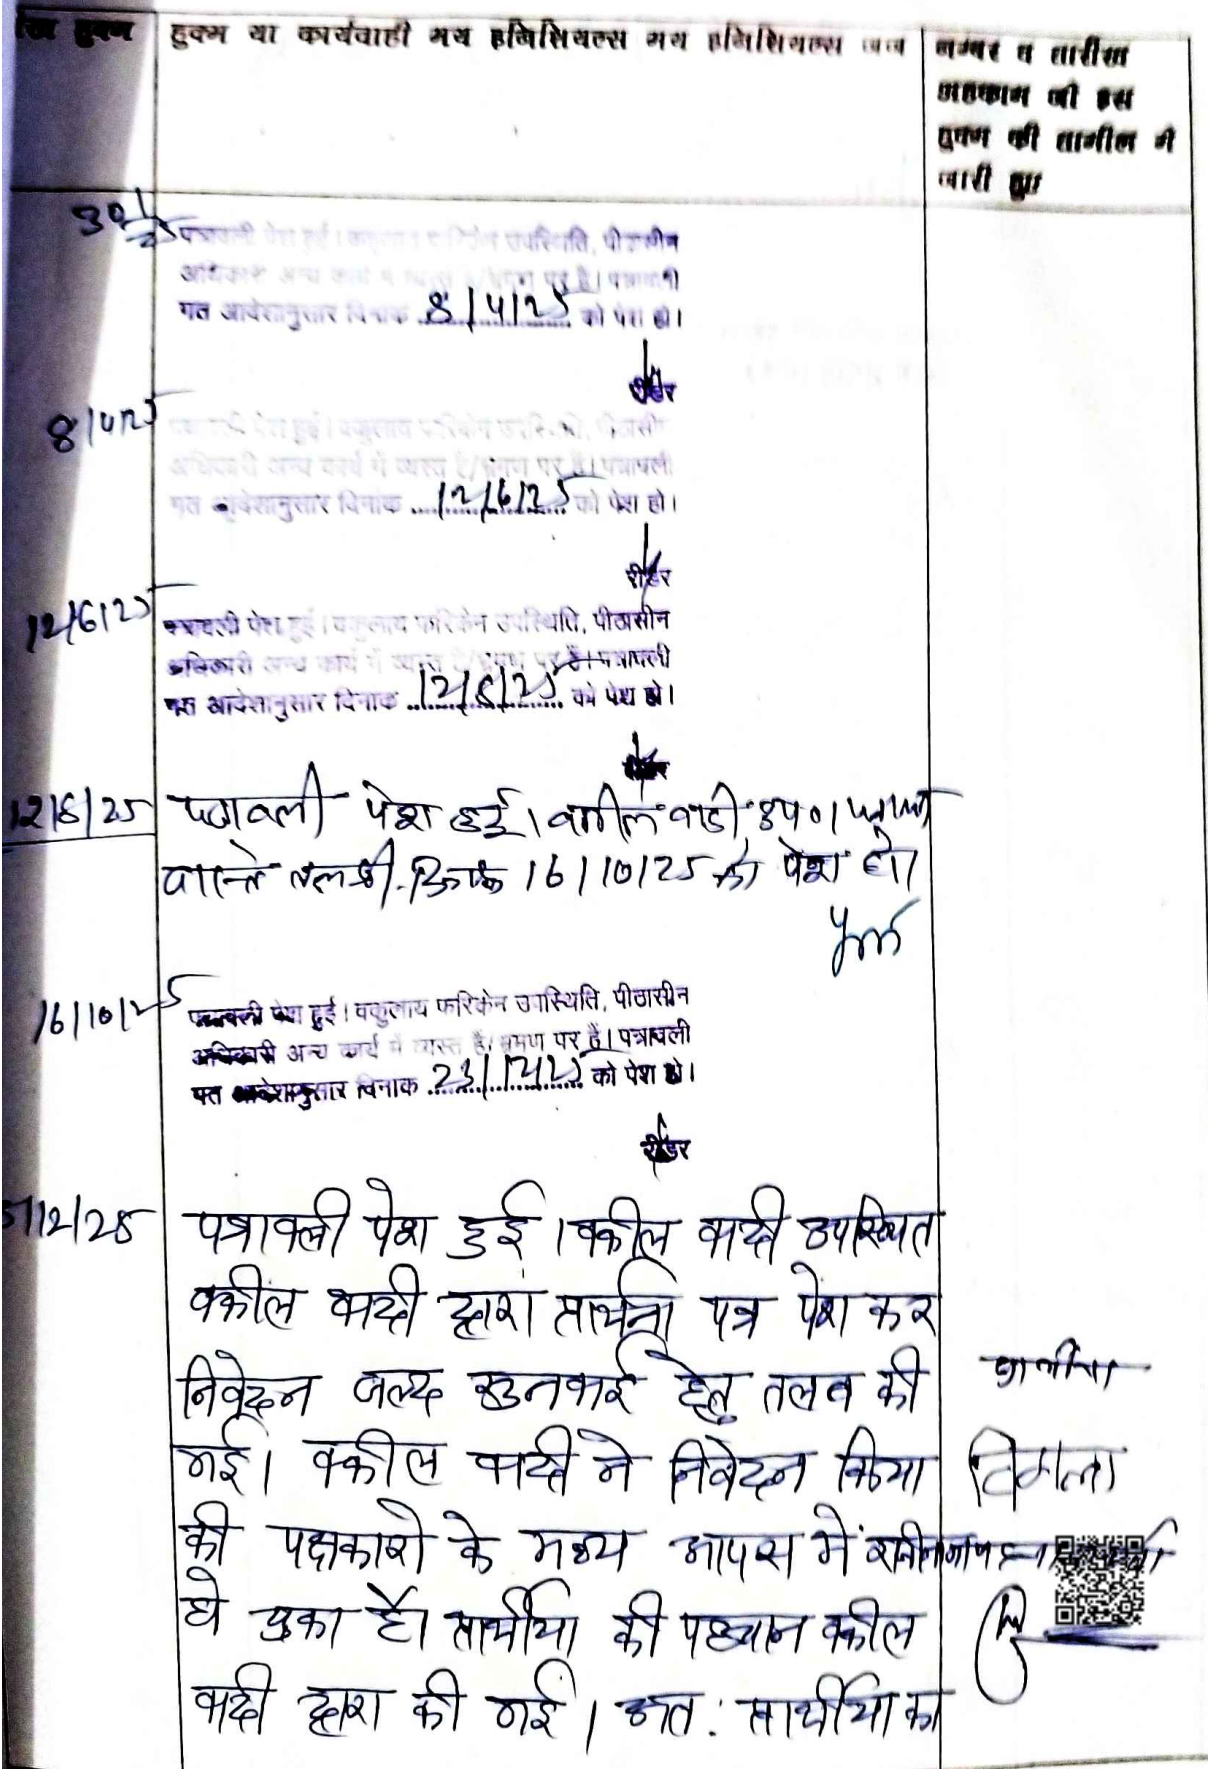 हुक्म या कार्यवाही मय इनिशियल्स मय इनिशियल्स जज
नम्बर व तारीख
अहकाम जो इस
हुक्म की तामील में
जारी हुए
पत्रावली पेश हुई। वकुलाय फरिकेन उपस्थिति, पीठासीन
अधिकारी अन्य कार्य में व्यस्त है/भ्रमण पर है। पत्रावली
गत आदेशानुसार दिनांक 8/4/25 को पेश हो।
रीडर
8/4/25
पत्रावली पेश हुई। वकुलाय फरिकेन उपस्थिति, पीठासीन
अधिकारी अन्य कार्य में व्यस्त है/भ्रमण पर है। पत्रावली
गत आदेशानुसार दिनांक 12/6/25 को पेश हो।
रीडर
12/6/25
पत्रावली पेश हुई। वकुलाय फरिकेन उपस्थिति, पीठासीन
अधिकारी अन्य कार्य में व्यस्त है/भ्रमण पर है। पत्रावली
गत आदेशानुसार दिनांक 12/8/25 को पेश हो।
रीडर
12/8/25 पत्रावली पेश हुई। वकील वादी उप०।
वास्ते तलबी दिनांक 16/10/25 को पेश हो।
16/10/25
पत्रावली पेश हुई। वकुलाय फरिकेन उपस्थिति, पीठासीन
अधिकारी अन्य कार्य में व्यस्त है/भ्रमण पर है। पत्रावली
गत आदेशानुसार दिनांक 23/12/25 को पेश हो।
रीडर
/12/25 पत्रावली पेश हुई। वकील वादी उपस्थित
वकील वादी द्वारा प्रार्थना पत्र पेश कर
निवेदन जल्द सुनवाई हेतु तलब की
गई। वकील वादी ने निवेदन किया
की पक्षकारो के मध्य आपस में राजीनामा
हो चुका है। प्रार्थीया की पहचान वकील
वादी द्वारा की गई। अत: प्रार्थीया का
प्रार्थीया
विमला